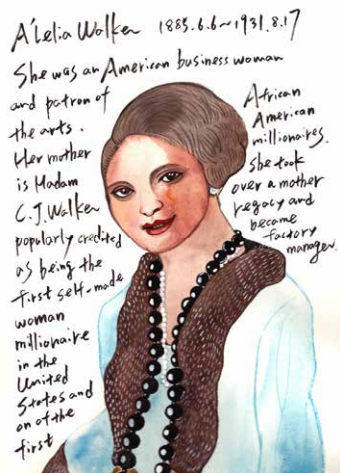 A'Lelia Walker 1885.6.6~1931.8.17
She was an American business woman
and patron of
the arts.
Her mother
is Madam
C.J. Walker
popularly credited
as being the
first self-made
woman
millionaire
in the
United
States and
on of the
first
African
American
millionaires.
She took
over a mother
legacy and
became
factory
manager.